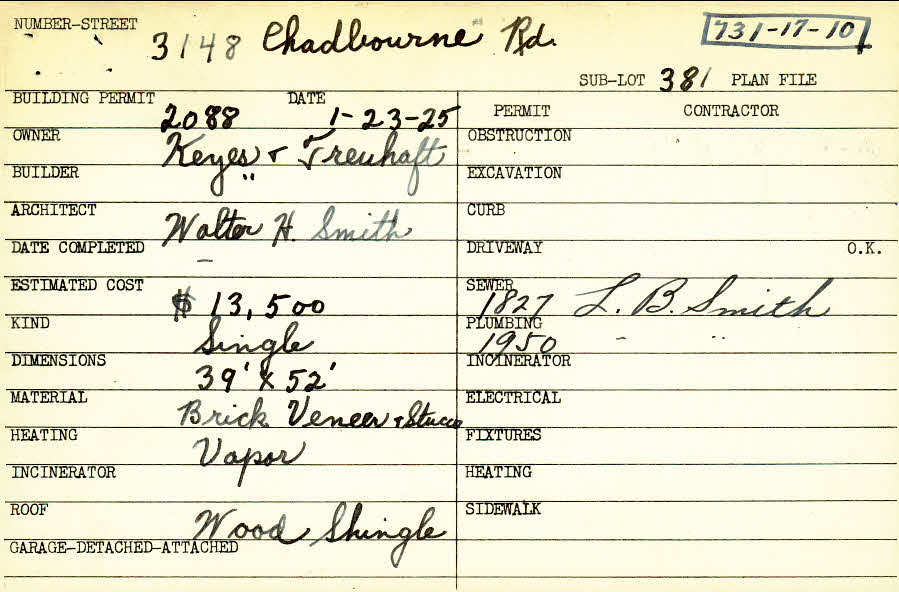 NUMBER-STREET 3148 Chadbourne Rd. 731-17-10
SUB-LOT 381 PLAN FILE
BUILDING PERMIT 2088 DATE 1-23-25
OWNER Keyes + Treuhaft
BUILDER " "
ARCHITECT Walter H. Smith
DATE COMPLETED –
ESTIMATED COST $ 13,500
KIND Single
DIMENSIONS 39' x 52'
MATERIAL Brick Veneer + Stucco
HEATING Vapor
INCINERATOR
ROOF Wood Shingle
GARAGE-DETACHED-ATTACHED
PERMIT CONTRACTOR
OBSTRUCTION
EXCAVATION
CURB
DRIVEWAY O.K.
SEWER 1827 L. B. Smith
PLUMBING 1950 " "
INCINERATOR
ELECTRICAL
FIXTURES
HEATING
SIDEWALK